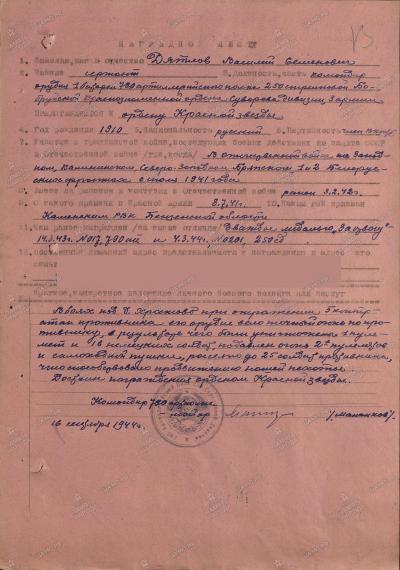 НАГРАДНОЙ ЛИСТ
1. Фамилия, имя и отчество Дятлов Василий Семенович
2. Звание сержант 3. Должность, часть командир
орудия 1 батареи 790 артиллерийского полка 250 стрелковой Бо-
бруйской Краснознаменной ордена Суворова дивизии 3 армии
Представляется к ордену Красной звезды
4. Год рождения 1910 5. Национальность русский 6. Партийность член ВКП(б)
7. Участие в гражданской войне, последующих боевых действиях по защите СССР
и Отечественной войне /где, когда/ В отечественной войне на Запад-
ном, Калининском, Северо-Западном, Брянском, 1 и 2 Белорус-
ских фронтах с июля 1941 года
8. Имеет ли ранения и контузии в Отечественной войне ранен 3.2.43 г.
9. С какого времени в Красной армии 3.7.41 г. 10. Каким РВК призван
Каменским РВК Пензенской области
11. Чем ранее награжден /за какие отличия/ Дважды медалью „За отвагу"
14.8.43 г. №017, 790 ап и 4.3.44 г. №0201, 250 сд
12. Постоянный домашний адрес представляемого к награждению и адрес его
семьи
Краткое, конкретное изложение личного боевого подвига или заслуг
В боях под П. при отражении 5 контр-
атак противника его орудие вело огонь по про-
тивнику, в результате чего были уничтожены 1 пуле-
мет и 16 немецких солдат, подавлен огонь 2х пулеметов
и самоходной пушки, рассеяно до 25 солдат противника,
что способствовало продвижению нашей пехоты.
Достоин награждения орденом Красной звезды.
Командир 790 артполка
майор /Маланков/.
16 сентября 1944 г.